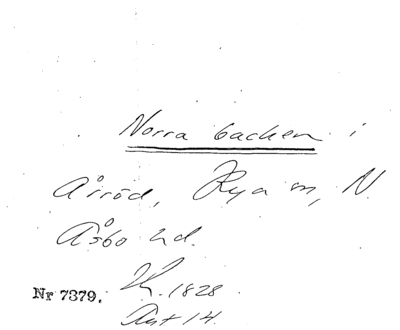 Norra backen i
Årröd, Hya sn, N.
Åsbo hd.
Nr 7379.
1828
Akt 14.